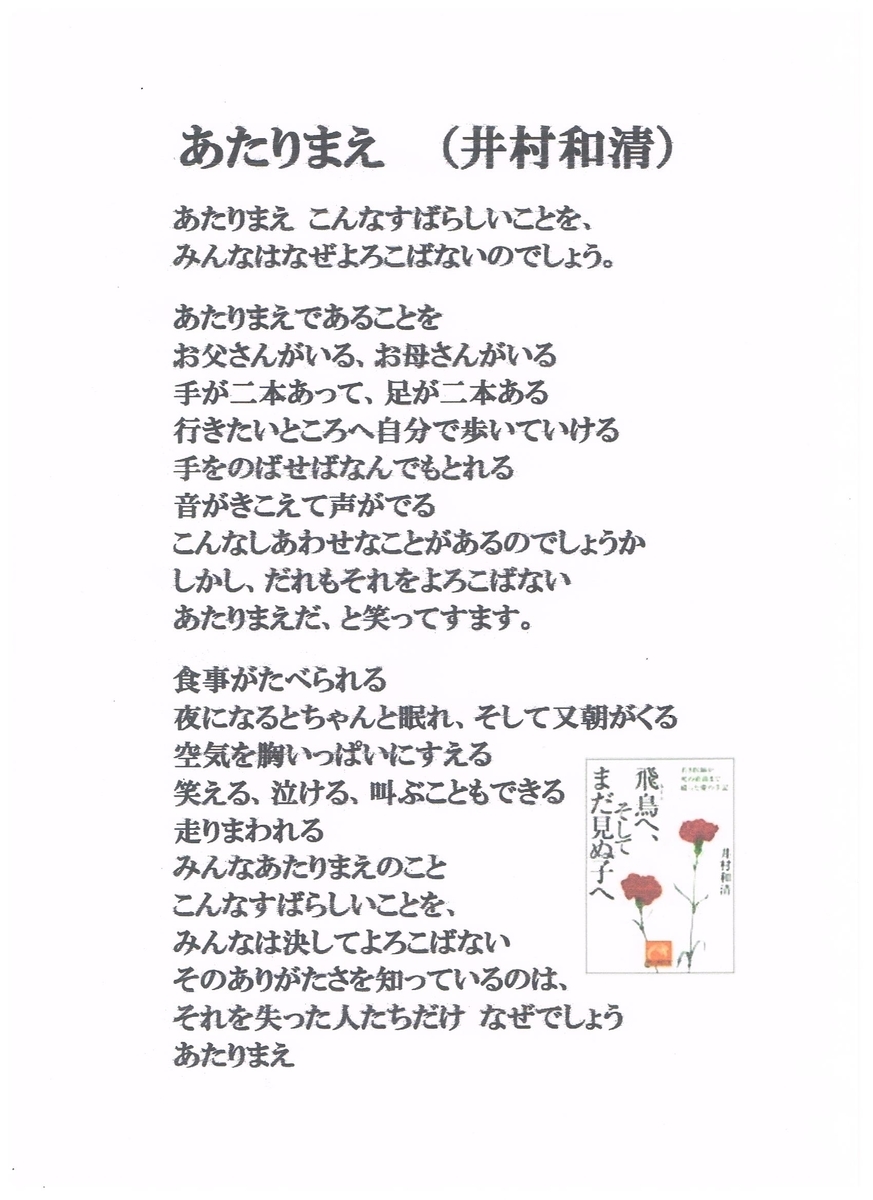 あたりまえ （井村和清）
あたりまえ こんなすばらしいことを、
みんなはなぜよろこばないのでしょう。
あたりまえであることを
お父さんがいる、お母さんがいる
手が二本あって、足が二本ある
行きたいところへ自分で歩いていける
手をのばせばなんでもとれる
音がきこえて声がでる
こんなしあわせなことがあるのでしょうか
しかし、だれもそれをよろこばない
あたりまえだ、と笑ってすます。
食事がたべられる
夜になるとちゃんと眠れ、そして又朝がくる
空気を胸いっぱいにすえる
笑える、泣ける、叫ぶこともできる
走りまわれる
みんなあたりまえのこと
こんなすばらしいことを、
みんなは決してよろこばない
そのありがたさを知っているのは、
それを失った人たちだけ なぜでしょう
あたりまえ
飛鳥へ、
そして
まだ見ぬ子へ
井村和清